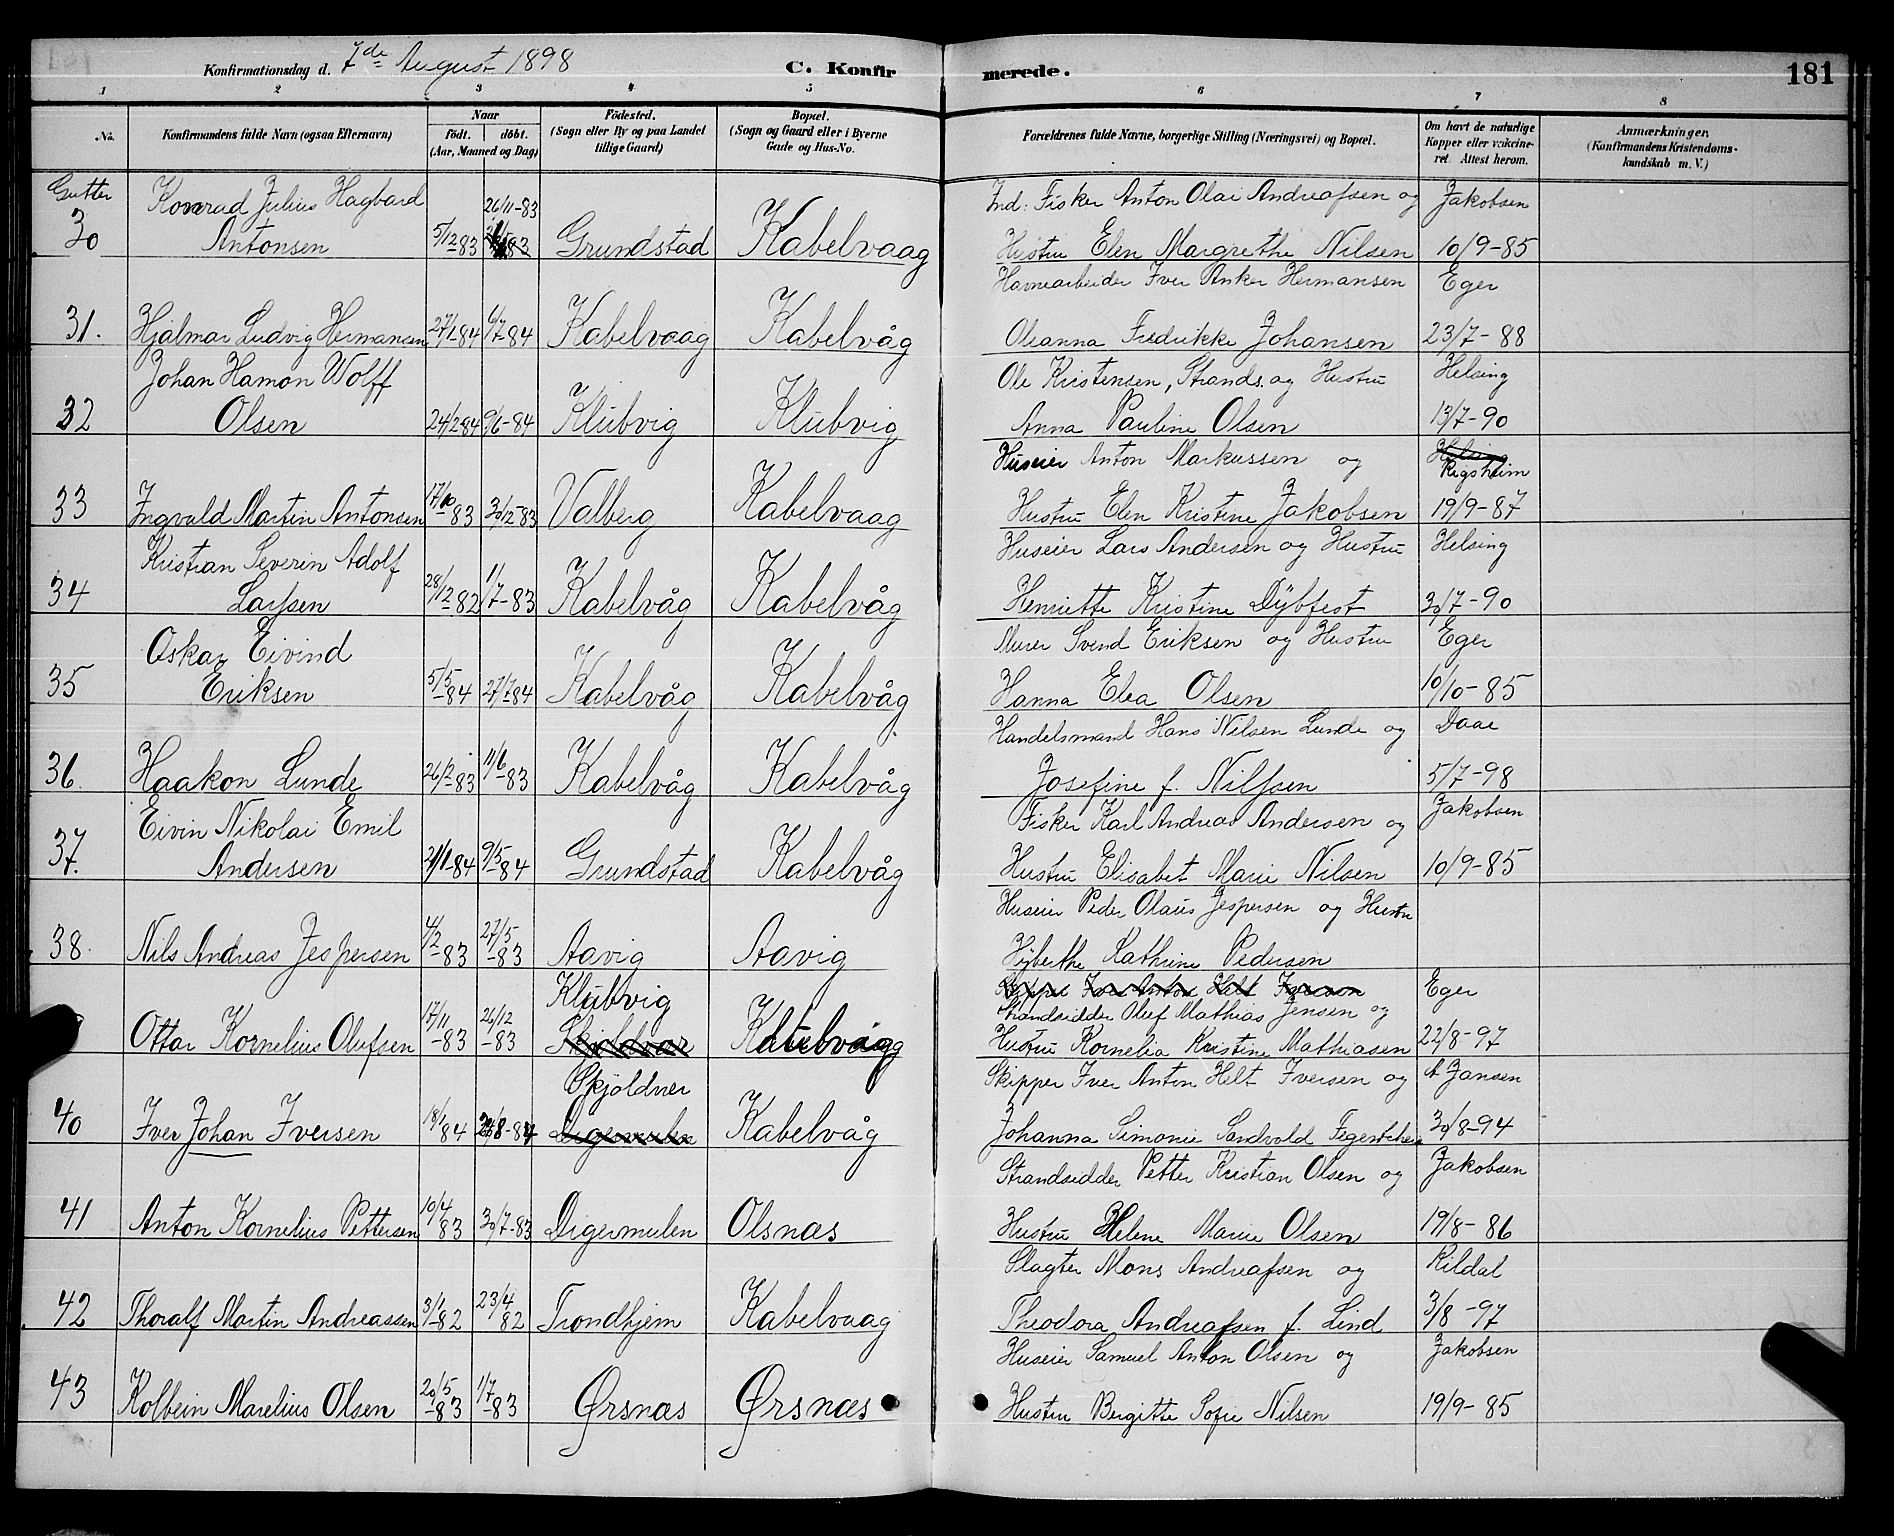 Konfirmationsdag d. 7de August 1898 C. Konfirmerede. 181
1 2 3 4 5 6 7 8
No. Konfirmandens fulde Navn (ogsaa Efternavn) Naar født. døbt. (Aar, Maaned og Dag) Fødested. (Sogn eller By og paa Landet tillige Gaard) Bopæl. (Sogn og Gaard eller i Byerne Gade og Hus-No. Forældrenes fulde Navne, borgerlige Stilling (Næringsvei) og Bopæl. Om havt de naturlige Kopper eller vaccineret. Attest herom. Anmærkninger. (Konfirmandens Kristendomskundskab m. V.)
Gutter Konrad Julius Hagbard 26/11-83 Ind: Fisker Anton Olai Andreassen og Jakobsen
30 Antonsen 5/12-83 Grundstad Kabelvaag Hustru Elen Margrethe Nilsen 10/9-85
Havnearbeider Iver Anker Hermansen Eger
31. Hjalmar Ludvig Hermansen 27/1-84 6/7-84 Kabelvaag Kabelvåg Oleanna Fredrikke Johansen 23/7-88
Johan Hamon Wolff Ole Kristensen, Strands. og Hustru Helsing
32 Olsen 24/2 84 9/6-84 Klubvig Klubvig Anna Pauline Olsen 13/7-90
Huseier Anton Markussen og Helsing Rigsheim
33 Ingvald Martin Antonsen 17/10-83 30/12-83 Valberg Kabelvaag Hustru Elen Kristine Jakobsen 19/9-87
Kristian Severin Adolf Huseier Lars Andersen og Hustru Helsing
34 Larssen 28/12-82 1/7-83 Kabelvåg Kabelvåg Henriette Kristine Dybfest 30/7-90
Oskar Eivind Murer Svend Eriksen og Hustru Eger
35 Eriksen 5/5-84 27/7-84 Kabelvåg Kabelvåg Hanna Elea Olsen 10/10-85
Handelsmand Hans Nilsen Lunde og Daae
36. Haakon Lunde 26/2-83 11/6-83 Kabelvåg Kabelvåg Josefine f. Nilssen 5/7-98
Eivin Nikolai Emil Fisker Karl Andreas Andersen og Jakobsen
37. Andersen 21/1-84 9/5-84 Grundstad Kabelvåg Hustru Elisabet Marie Nilsen 10/9-85
Huseier Peder Olaus Jespersen og Hustru
38. Nils Andreas Jespersen 4/2-83 27/5-83 Aavig Aavig Hyberthe Kathrine Pedersen
Klubvig Skipper Iver Anton Helt Iversen Eger
Strandsidder Oluf Mathias Jensen og
Ottar Kornelius Olufsen 17/11-83 26/12-83 Skjoldvær Hustru Kornelia Kristine Mathiasen 22/8-97
Skjoldver Skipper Iver Anton Helt Iversen og A Jansen
40 Iver Johan Iversen 18/1 84 Digermulen Kabelvåg Johanna Simonie Sandvold 30/8-94
Strandsidder Petter Kristian Olsen og Jakobsen
41 Anton Kornelius Pettersen 10/4 83 30/7-83 Digermulen Olsnæs Hustru Helene Marie Olsen 19/8-86
Slagter Mons Andreassen og Rildal
42 Thoralf Martin Andreassen 3/1-82 23/4 82 Trondhjem Kabelvaag Theodora Andreassen f. Lind 3/8-97
Huseier Samuel Anton Olsen og Jakobsen
43 Kolbein Marelius Olsen 20/5-83 1/7-83 Ørsnæs Ørsnæs Hustru Bergitte Sofie Nilsen 19/9-85